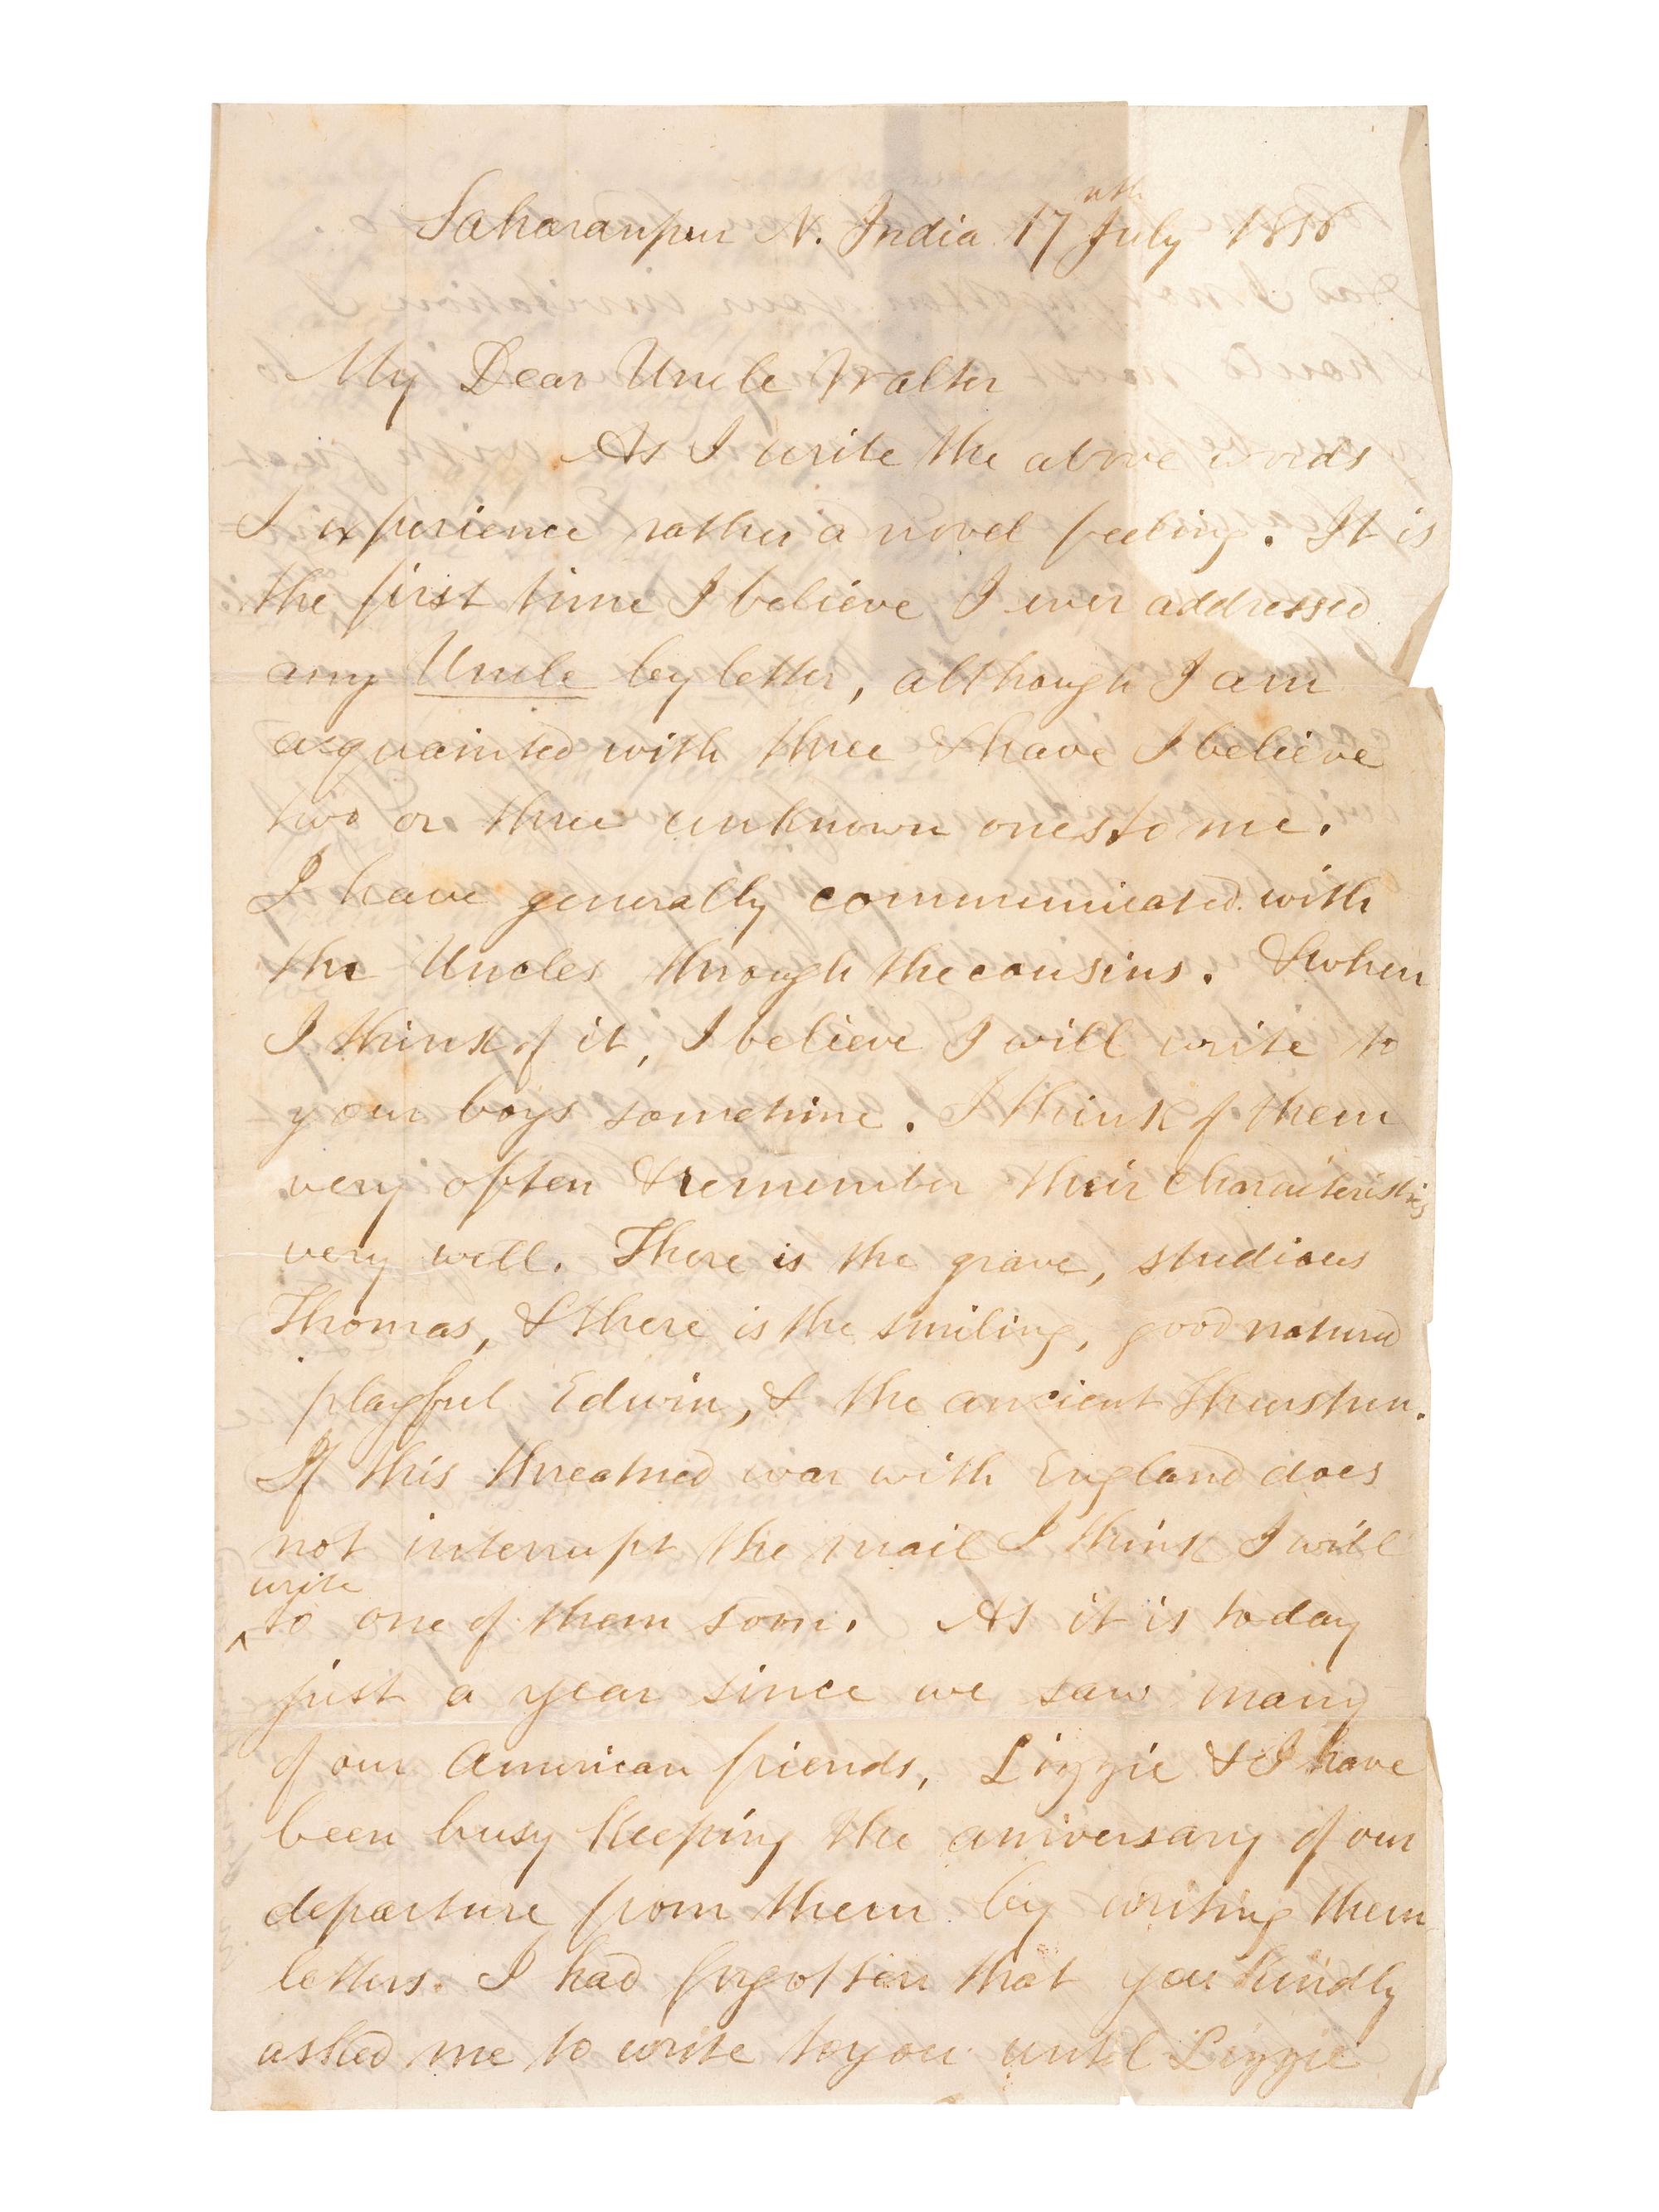 Saharanpur N. India 17th July 1856
My Dear Uncle Walter
As I write the above words
I experience rather a novel feeling. It is
the first time I believe I ever addressed
any Uncle by letter, although I am
acquainted with three & have I believe
two or three unknown ones to me.
I have generally communicated with
the Uncles through the cousins. & when
I think of it, I believe I will write to
your boys sometime. I think of them
very often & remember their characteristics
very well. There is the grave, studious
Thomas, & there is the smiling, good natured
playful Edwin, & the ancient Thurston.
If this threatned war with England does
not interrupt the mail I think I will
write
to one of them soon. As it is today
just a year since we saw many
of our American friends, Lizzie & I have
been busy keeping the aniversary of our
departure from them by writing them
letters. I had forgotten that you kindly
asked me to write to you until Lizzie